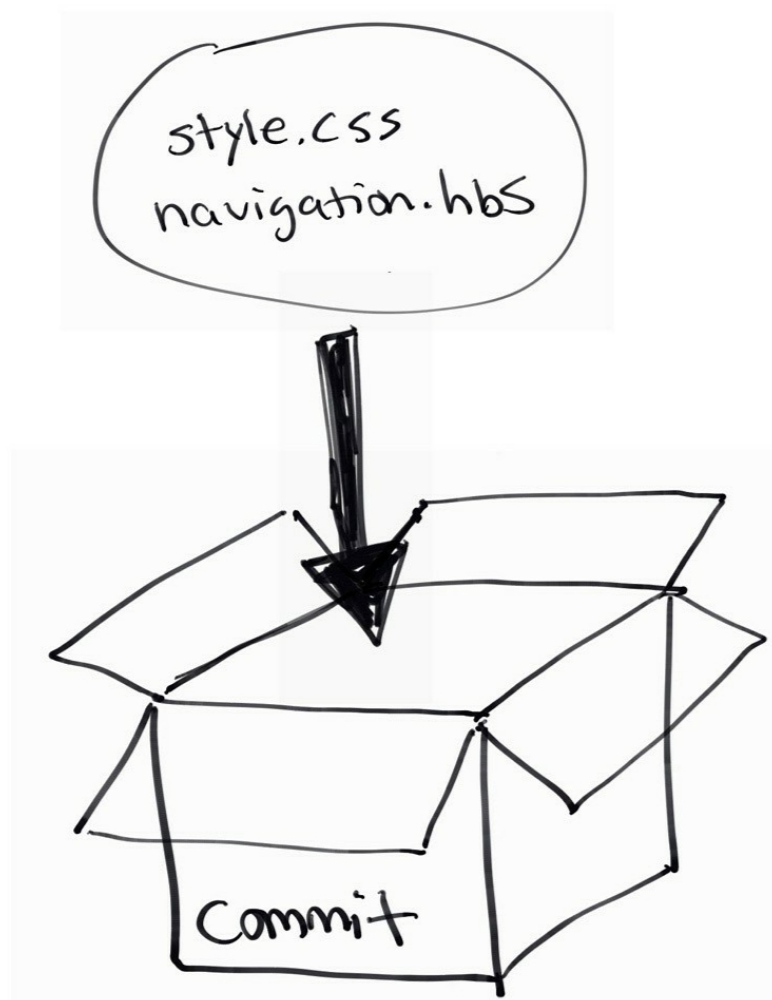 style.css
navigation.hbs
commit